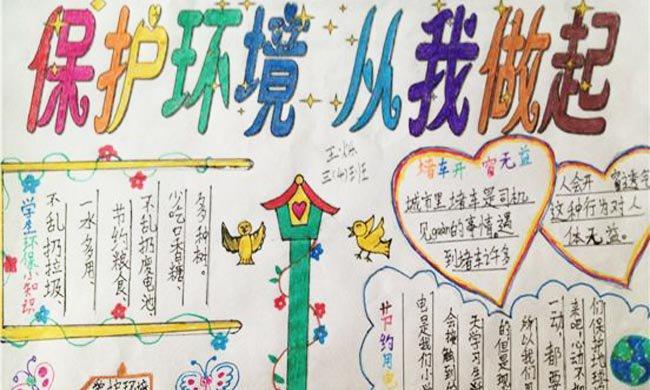 保护环境 从我做起
三(4)班
学生环保小知识
不乱扔垃圾、
一水多用、
节约粮食、
不乱扔废电池
少吃口香糖、
多多种树。
堵车开窗无益
城市里堵车是司机
见gaan的事情遇
到堵车许多
人会开窗透气
这种行为对人
体无益。
节约用电
电是我们小
会接触到
天学习生
的但是
所以我们
一动都要
来吧心动不
们保护地球